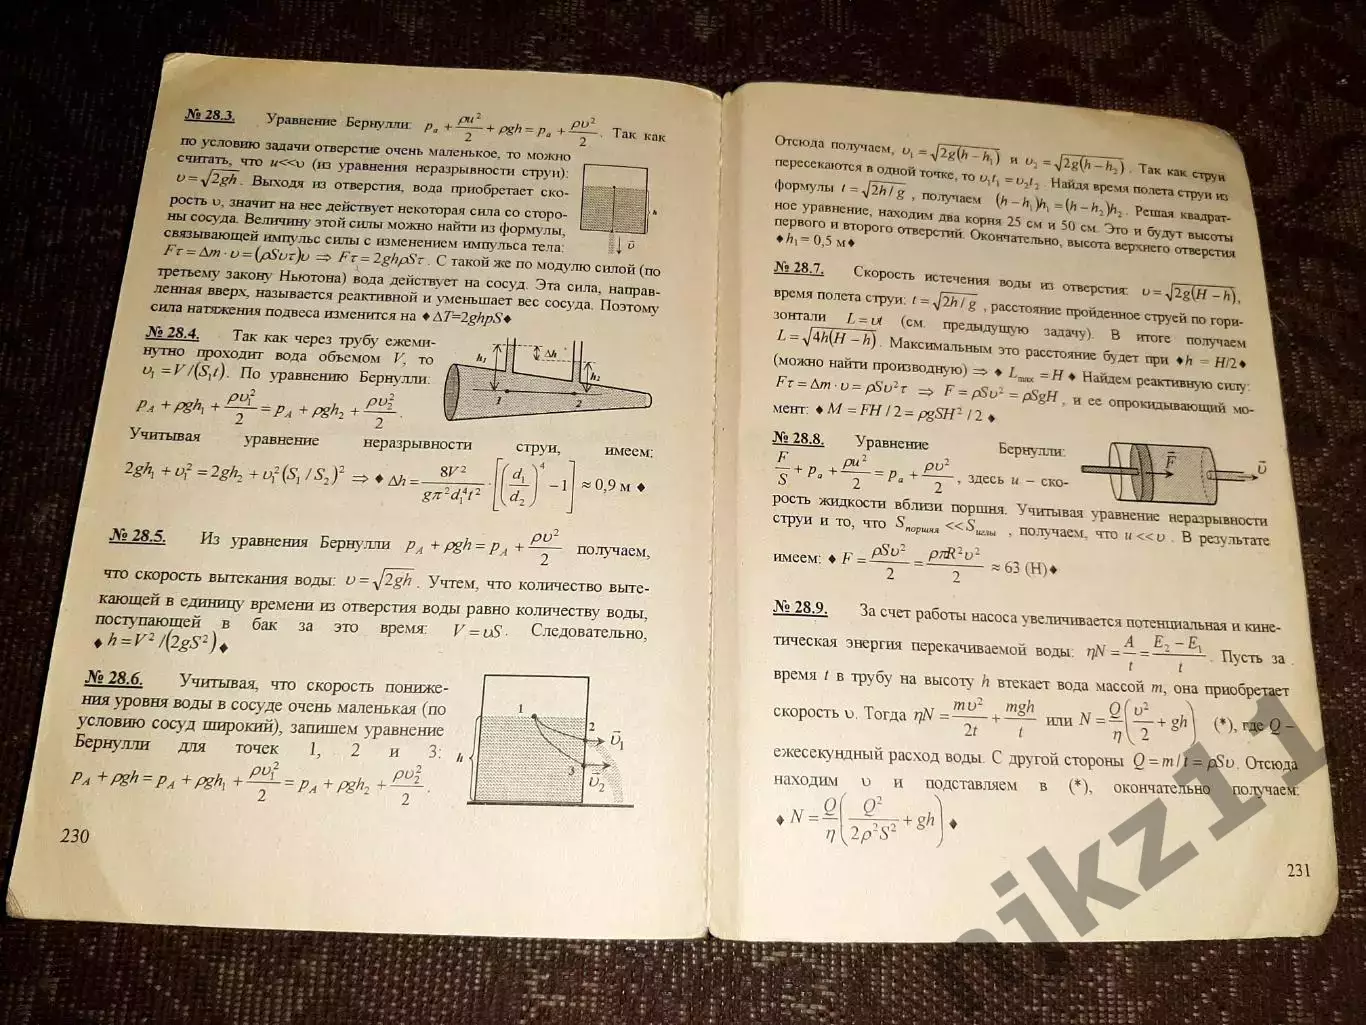 № 28.3. Уравнение Бернулли: pₐ + ρu²/2 + ρgh = pₐ + ρυ²/2. Так как
по условию задачи отверстие очень маленькое, то можно
считать, что u<<υ (из уравнения неразрывности струи):
υ = √2gh. Выходя из отверстия, вода приобретает ско-
рость υ, значит на нее действует некоторая сила со сторо-
ны сосуда. Величину этой силы можно найти из формулы,
связывающей импульс силы с изменением импульса тела:
Fτ = Δm·υ = (ρSυτ)υ ⇒ Fτ = 2ghρSτ. С такой же по модулю силой (по
третьему закону Ньютона) вода действует на сосуд. Эта сила, направ-
ленная вверх, называется реактивной и уменьшает вес сосуда. Поэтому
сила натяжения подвеса изменится на ♦ΔT=2ghρS♦
h
υ⃗
№ 28.4. Так как через трубу ежеми-
нутно проходит вода объемом V, то
υ₁ = V/(S₁t). По уравнению Бернулли:
p_A + ρgh₁ + ρυ₁²/2 = p_A + ρgh₂ + ρυ₂²/2.
h₁ Δh h₂
1 2
Учитывая уравнение неразрывности струи, имеем:
2gh₁ + υ₁² = 2gh₂ + υ₁²(S₁/S₂)² ⇒ ♦ Δh = 8V²/(gπ²d₁⁴t²) · [(d₁/d₂)⁴ − 1] ≈ 0,9 м ♦
№ 28.5. Из уравнения Бернулли p_A + ρgh = p_A + ρυ²/2 получаем,
что скорость вытекания воды: υ = √2gh. Учтем, что количество выте-
кающей в единицу времени из отверстия воды равно количеству воды,
поступающей в бак за это время: V = υS. Следовательно,
♦ h = V²/(2gS²)♦
№ 28.6. Учитывая, что скорость пониже-
ния уровня воды в сосуде очень маленькая (по
условию сосуд широкий), запишем уравнение
Бернулли для точек 1, 2 и 3:
p_A + ρgh = p_A + ρgh₁ + ρυ₁²/2 = p_A + ρgh₂ + ρυ₂²/2.
1 2
υ⃗₁
h 3
υ⃗₂
230
Отсюда получаем, υ₁ = √2g(h − h₁) и υ₂ = √2g(h − h₂). Так как струи
пересекаются в одной точке, то υ₁t₁ = υ₂t₂. Найдя время полета струи из
формулы t = √2h/g, получаем (h − h₁)h₁ = (h − h₂)h₂. Решая квадрат-
ное уравнение, находим два корня 25 см и 50 см. Это и будут высоты
первого и второго отверстий. Окончательно, высота верхнего отверстия
♦h₁ = 0,5 м♦
№ 28.7. Скорость истечения воды из отверстия: υ = √2g(H − h),
время полета струи: t = √2h/g, расстояние пройденное струей по гори-
зонтали L = υt (см. предыдущую задачу). В итоге получаем
L = √4h(H − h). Максимальным это расстояние будет при ♦h = H/2♦
(можно найти производную) ⇒ ♦ Lmax = H ♦ Найдем реактивную силу:
Fτ = Δm·υ = ρSυ²τ ⇒ F = ρSυ² = ρSgH, и ее опрокидывающий мо-
мент: ♦ M = FH/2 = ρgSH²/2 ♦
№ 28.8. Уравнение Бернулли:
F/S + pₐ + ρu²/2 = pₐ + ρυ²/2, здесь u – ско-
F⃗ υ⃗
рость жидкости вблизи поршня. Учитывая уравнение неразрывности
струи и то, что Sпоршня << Sиглы, получаем, что u<<υ. В результате
имеем: ♦ F = ρSυ²/2 = ρπR²υ²/2 ≈ 63 (Н)♦
№ 28.9. За счет работы насоса увеличивается потенциальная и кине-
тическая энергия перекачиваемой воды: ηN = A/t = (E₂ − E₁)/t. Пусть за
время t в трубу на высоту h втекает вода массой m, она приобретает
скорость υ. Тогда ηN = mυ²/2t + mgh/t или N = Q/η (υ²/2 + gh) (*), где Q –
ежесекундный расход воды. С другой стороны Q = m/t = ρSυ. Отсюда
находим υ и подставляем в (*), окончательно получаем:
♦ N = Q/η (Q²/2ρ²S² + gh) ♦
231
nikz11